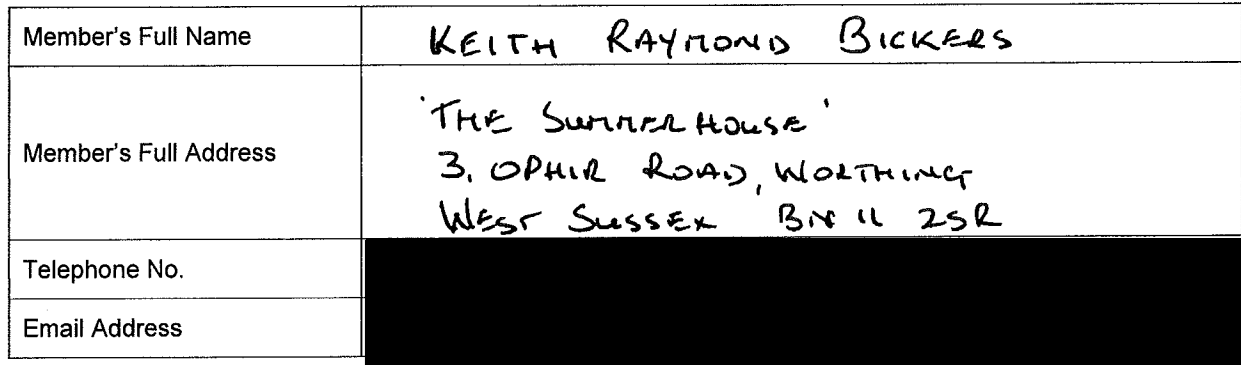 Member's Full Name KEITH RAYMOND BICKERS
Member's Full Address 'THE SUMMERHOUSE'
3, OPHIR ROAD, WORTHING
WEST SUSSEX BN11 2SR
Telephone No.
Email Address